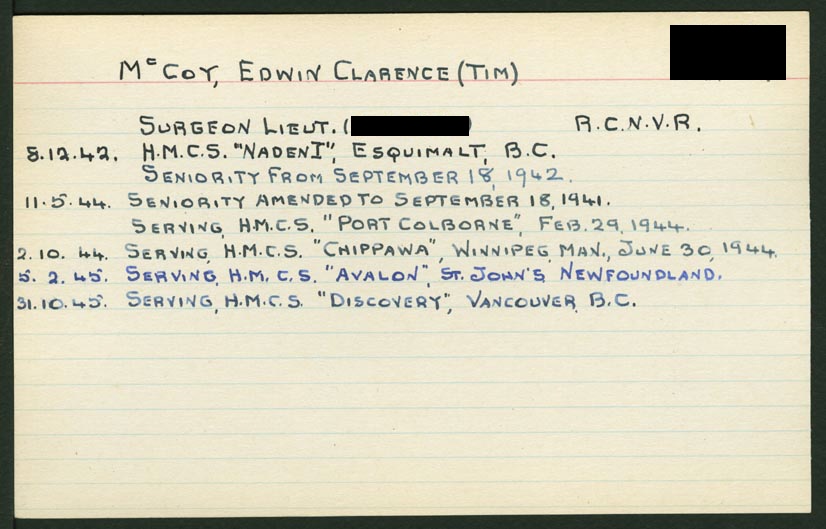 McCOY, EDWIN CLARENCE (TIM)
SURGEON LIEUT. ( ) R.C.N.V.R.
8.12.42. H.M.C.S. "NADEN I", ESQUIMALT, B.C.
SENIORITY FROM SEPTEMBER 18, 1942.
11.5.44. SENIORITY AMENDED TO SEPTEMBER 18, 1941.
SERVING, H.M.C.S. "PORT COLBORNE", FEB. 29, 1944.
2.10.44. SERVING, H.M.C.S. "CHIPPAWA", WINNIPEG, MAN., JUNE 30, 1944.
5.2.45. SERVING, H.M.C.S. "AVALON", ST. JOHN'S, NEWFOUNDLAND.
31.10.45. SERVING, H.M.C.S. "DISCOVERY", VANCOUVER, B.C.